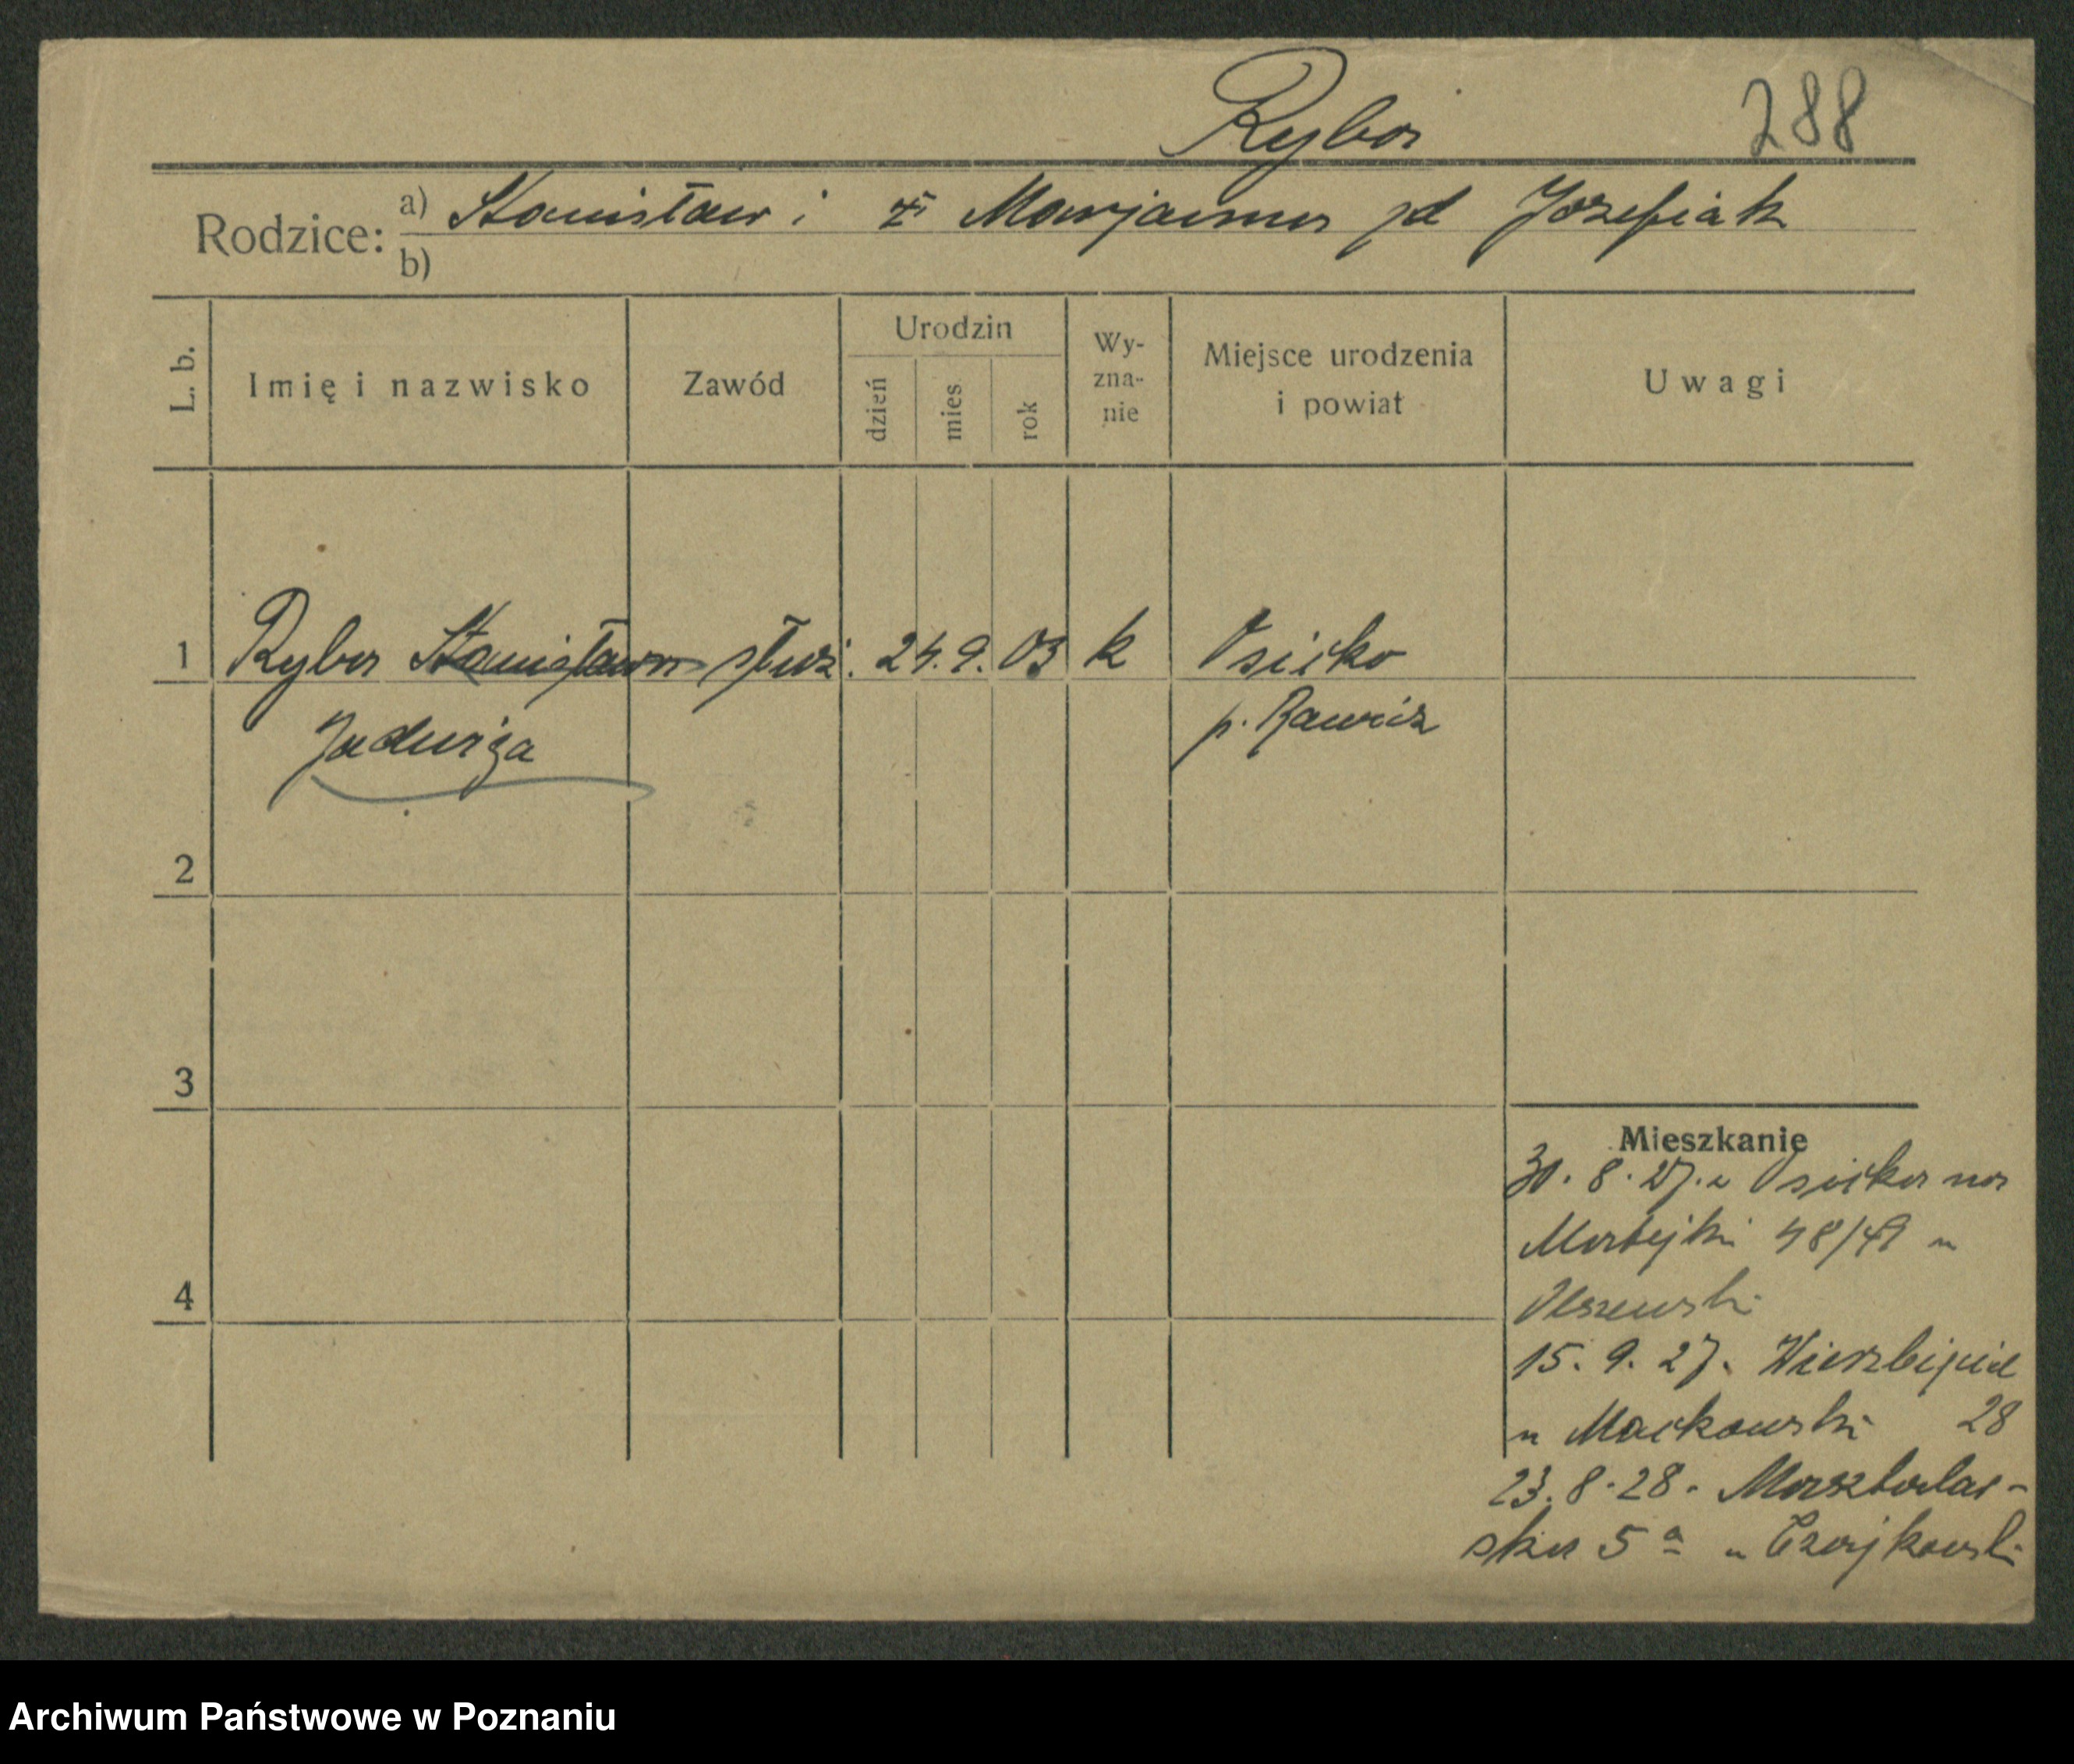 Ryba 288
Rodzice: a) Stanisław i ż Marjanna zd Józefiak
b)
L. b. Imię i nazwisko Zawód Urodzin dzień mies rok Wy-zna-nie Miejsce urodzenia i powiat Uwagi
1 Ryba Stanisława służ. 24. 9. 03 k Osieko
Jadwiga p. Rawicz
2
3
Mieszkanie
30. 8. 27. z Osieka na
Matejki 48/49 u
4
Olszewski
15. 9. 27. Wierzbięcic
u Maćkowski 28
23. 8. 28. Masztalar-
ska 5 a u Czajkowski
Archiwum Państwowe w Poznaniu